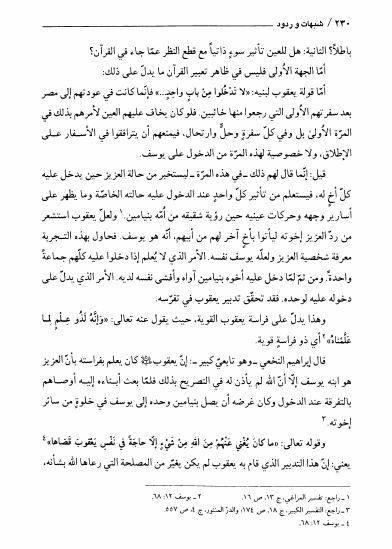 ٢٣٠ / شبهات و ردود
باطلاً؟ الثانية: هل للعين تأثير سوءٍ ذاتياً مع قطع النظر عمّا جاء في القرآن؟
أمّا الجهة الأولى فليس في ظاهر تعبير القرآن ما يدلّ على ذلك:
أمّا قولة يعقوب لبنيه: «لا تَدْخُلوا مِنْ بابٍ واحِدٍ...» فإنّما كانت في عودتهم إلى مصر
بعد سفرتهم الأولى التي رجعوا منها خائبين. فلو كان يخاف عليهم العين لأمرهم بذلك في
المرّة الأولى بل وفي كلّ سفرةٍ وحلٍّ وارتحال، فيمنعهم أن يترافقوا في الأسفار على
الإطلاق، ولا خصوصية لهذه المرّة من الدخول على يوسف.
قيل: إنّما قال لهم ذلك ـ في هذه المرّة ـ ليستخبر من حالة العزيز حين يدخل عليه
كلّ أخٍ له، فيستعلم من تأثير كلّ واحدٍ عند الدخول عليه حالته الخاصّة وما يظهر على
أسارير وجهه وحركات عينيه حين رؤية شقيقه من أمّه بنيامين.١ ولعلّ يعقوب استشعر
من ردّ العزيز إخوته ليأتوا بأخٍ آخر لهم من أبيهم، أنّه هو يوسف. فحاول بهذه التجربة
معرفة شخصية العزيز ولعلّه يوسف نفسه. الأمر الذي لا يُعلم إذا دخلوا عليه كلّهم جماعةً
واحدةً. ومن ثمّ لمّا دخل عليه أخوه بنيامين آواه وأفشى نفسه لديه. الأمر الذي يدلّ على
دخوله عليه لوحده. فقد تحقّق تدبير يعقوب في تفرّسه.
وهذا يدلّ على فراسة يعقوب القوية، حيث يقول عنه تعالى: «وَإِنَّهُ لَذُو عِلْمٍ لِما
عَلَّمْناهُ»٢ أي ذو فراسةٍ قوية.
قال إبراهيم النخعي ـ وهو تابعيّ كبير ـ: إنّ يعقوب كان يعلم بفراسته بأنّ العزيز
هو ابنه يوسف إلّا أنّ الله لم يأذن له في التصريح بذلك فلمّا بعث أبناءه إليه أوصاهم
بالتفرقة عند الدخول وكان غرضه أن يصل بنيامين وحده إلى يوسف في خلوةٍ من سائر
إخوته.٣
وقوله تعالى: «ما كانَ يُغْني عَنْهُمْ مِنَ اللهِ مِنْ شَيْءٍ إِلّا حاجَةً في نَفْسِ يَعْقوبَ قَضاها»٤
يعني: إنّ هذا التدبير الذي قام به يعقوب لم يكن يغيّر من المصلحة التي رعاها الله بشأنه،
١ ـ راجع: تفسير المراغي، ج ١٣، ص ١٦. ٢ ـ يوسف ١٢: ٦٨.
٣ ـ راجع: التفسير الكبير، ج ١٨، ص ١٧٤؛ والدرّ المنثور، ج ٤، ص ٥٥٧.
٤ ـ يوسف ١٢: ٦٨.